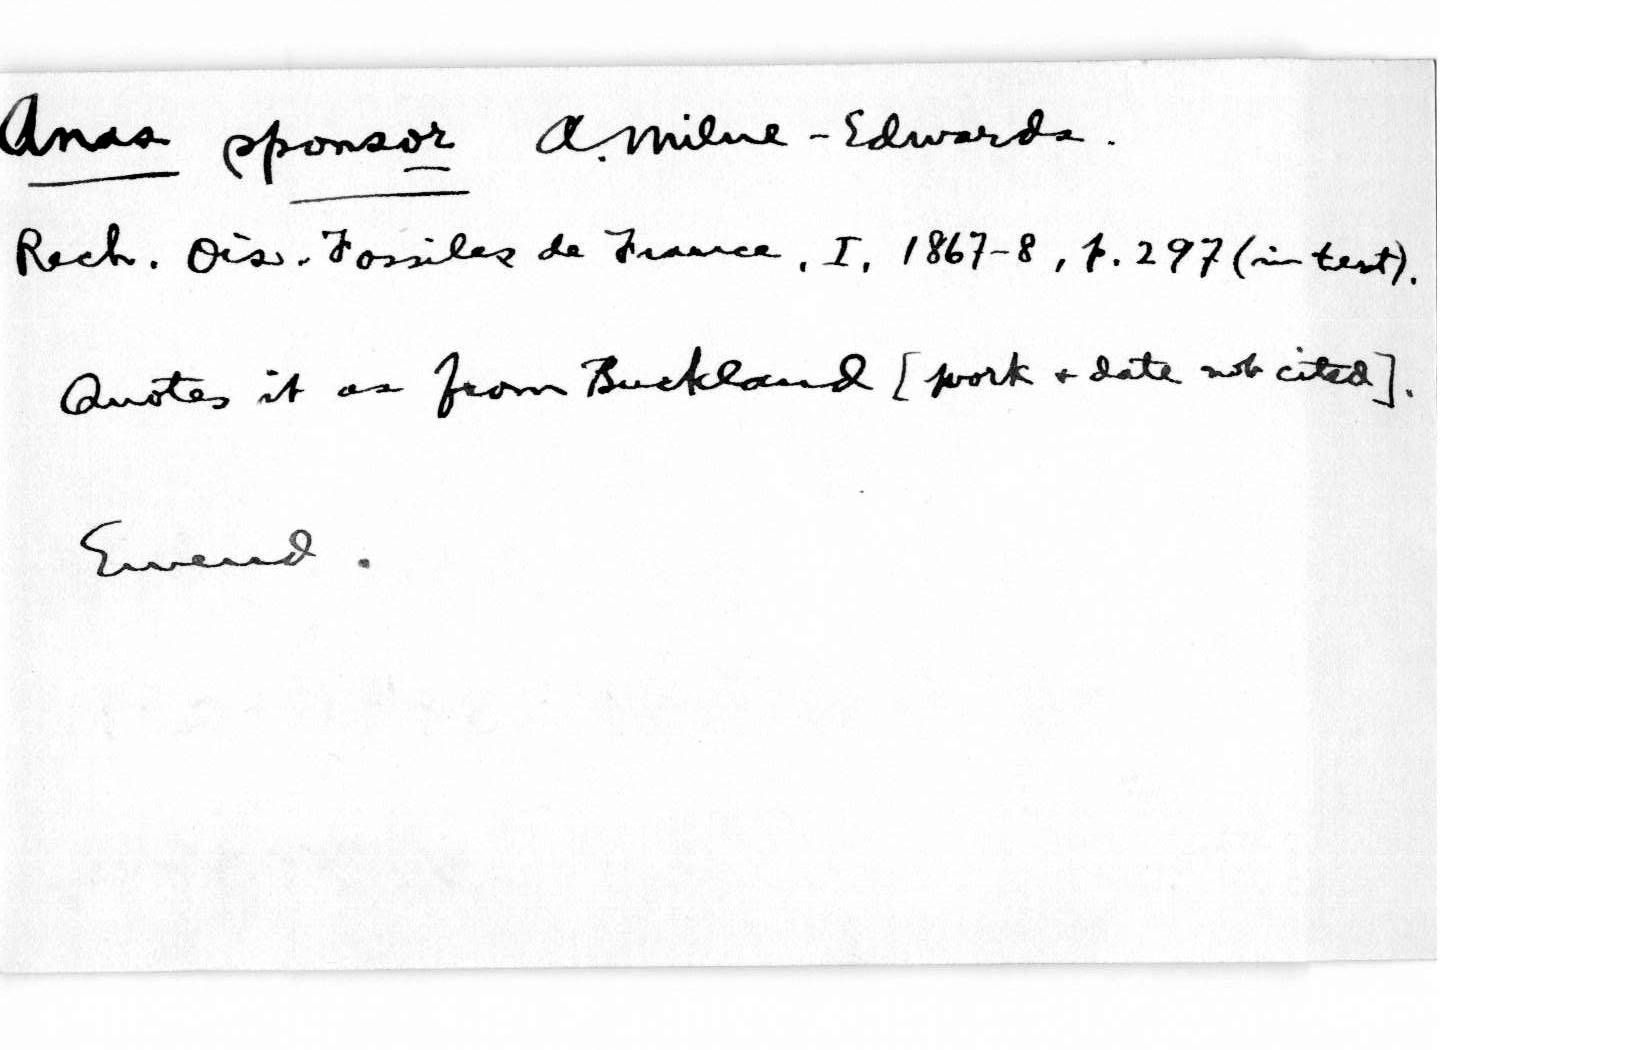 Anas sponsor A. Milne-Edwards.
Rech. Ois. Fossiles de France, I, 1867-8, p. 297 (in text).
Quotes it as from Buckland [work + date not cited].
Emend.